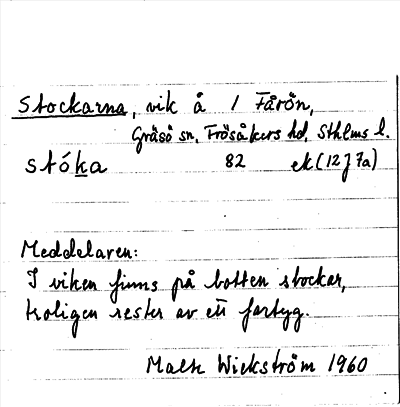 Stockarna, vik å / Fårön,
Gräsö sn, Frösåkers hd, Sthlms l.
stóka 82 ek (12 J 7a)
Meddelaren:
I viken finns på botten stockar,
troligen rester av ett fartyg.
Wickström 1960